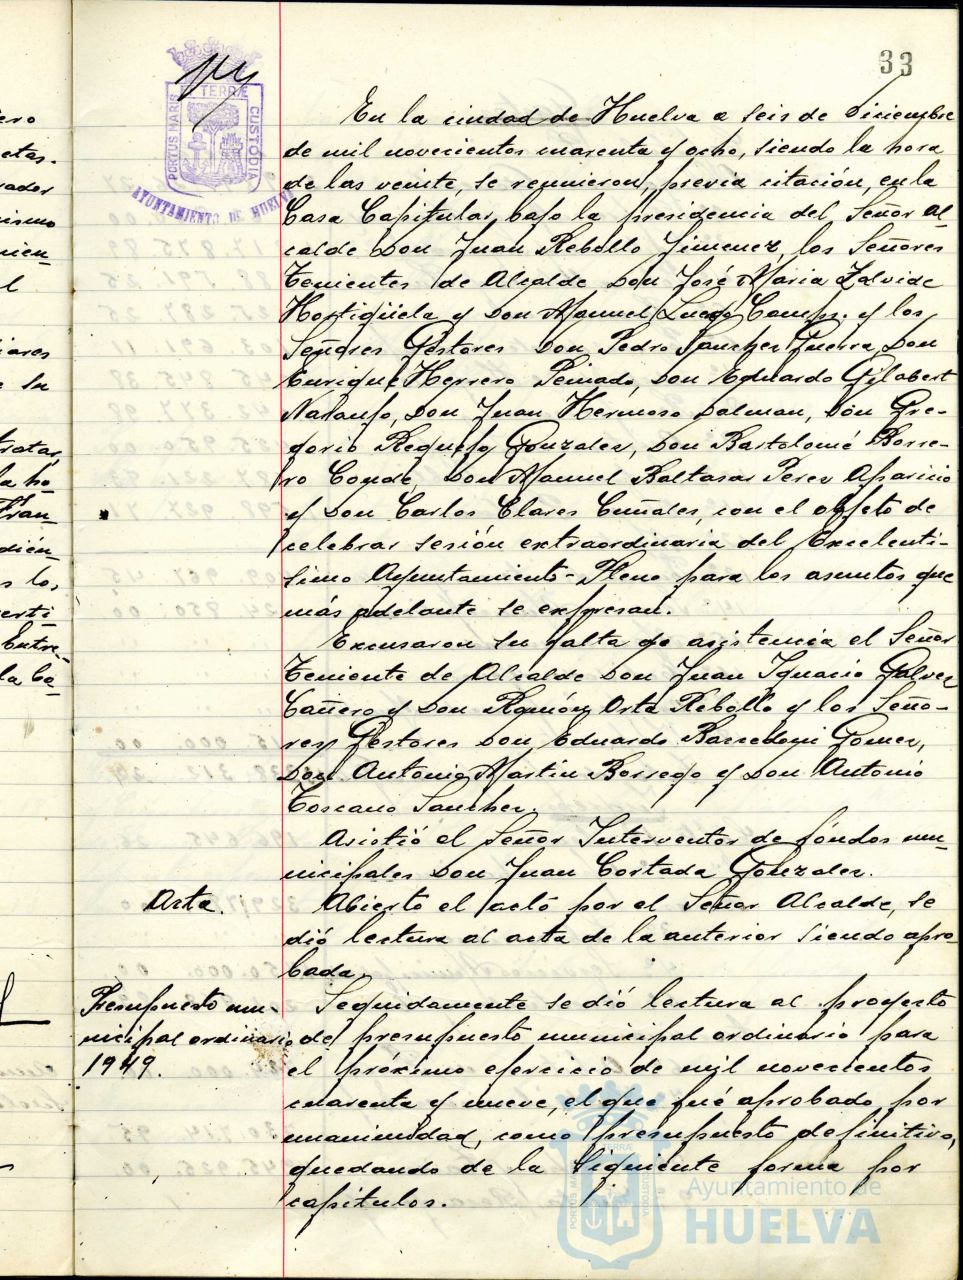 33
PORTUS MARIS ET TERRÆ CUSTODIA
AYUNTAMIENTO DE HUELVA
En la ciudad de Huelva a seis de Diciembre
de mil novecientos cuarenta y ocho, siendo la hora
de las veinte, se reunieron, previa citación, en la
Casa Capitular, bajo la presidencia del Señor Al-
calde Don Juan Rebollo Jimenez, los Señores
Tenientes de Alcalde Don José Maria Zalvide
Hortigüela y Don Manuel y los
Señores Gestores Don Pedro Sanchez Guerra, Don
Enrique Herrero Peinado, Don Eduardo Gilabert
Naranjo, Don Juan Hermoso Dalman, Don Gre-
gorio Requejo Gonzalez, Don Bartolomé Borre-
ro Conde, Don Manuel Baltasar Perez Aparicio
y Don Carlos Clares Cuñales, con el objeto de
celebrar sesión extraordinaria del Excelenti-
simo Ayuntamiento-Pleno para los asuntos que
más adelante se expresan.
Excusaron su falta de asistencia el Señor
Teniente de Alcalde Don Juan Ignacio Galvez
Cañero y Don Ramón Orta Rebollo y los Seño-
res Gestores Don Eduardo Gomez,
Don Antonio Martin Borrego y Don Antonio
Toscano Sanchez.
Asistió el Señor Interventor de fondos mu-
nicipales Don Juan Cortada Gonzalez.
Acta.
Abierto el acto por el Señor Alcalde, se
dió lectura al acta de la anterior siendo apro-
bada.
Presupuesto mu-
nicipal ordinario
1949.
Seguidamente se dió lectura al proyecto
de presupuesto municipal ordinario para
el próximo ejercicio de mil novecientos
cuarenta y nueve, el que fué aprobado por
unanimidad, como presupuesto definitivo,
quedando de la siguiente forma por
capitulos.
Ayuntamiento de
HUELVA